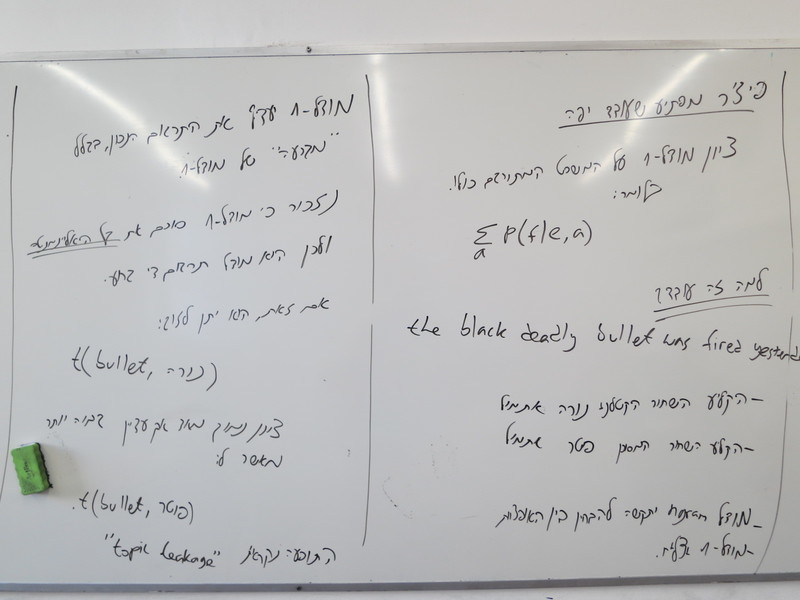 פיצ'ר מפתיע שעובד יפה
ציון מודל-1 על המשפט המתורגם כולו.
כלומר:
∑ P(f|e,a)
a
למה זה עובד?
the black deadly bullet was fired yesterda
- הקליע השחור הקטלני נורה אתמול
- הקלע השחור המסוכן פוטר אתמול
- מודל ngram יתקשה להבחין בין האופציות
- מודל-1 יצליח.
מודל-1 יעדיף את התרגום הנכון, בגלל
"מגרעה" של מודל-1.
נזכור כי מודל-1 סוכם את כל האליינמנטס
ולכן הוא מודל תרגום די גרוע.
אם זאת, הוא יתן לזוג:
t(bullet, נורה)
ציון נמוך מאוד אך עדיין גבוה יותר
מאשר ל:
t(bullet, פוטר).
התופעה נקראת "topic leakage"